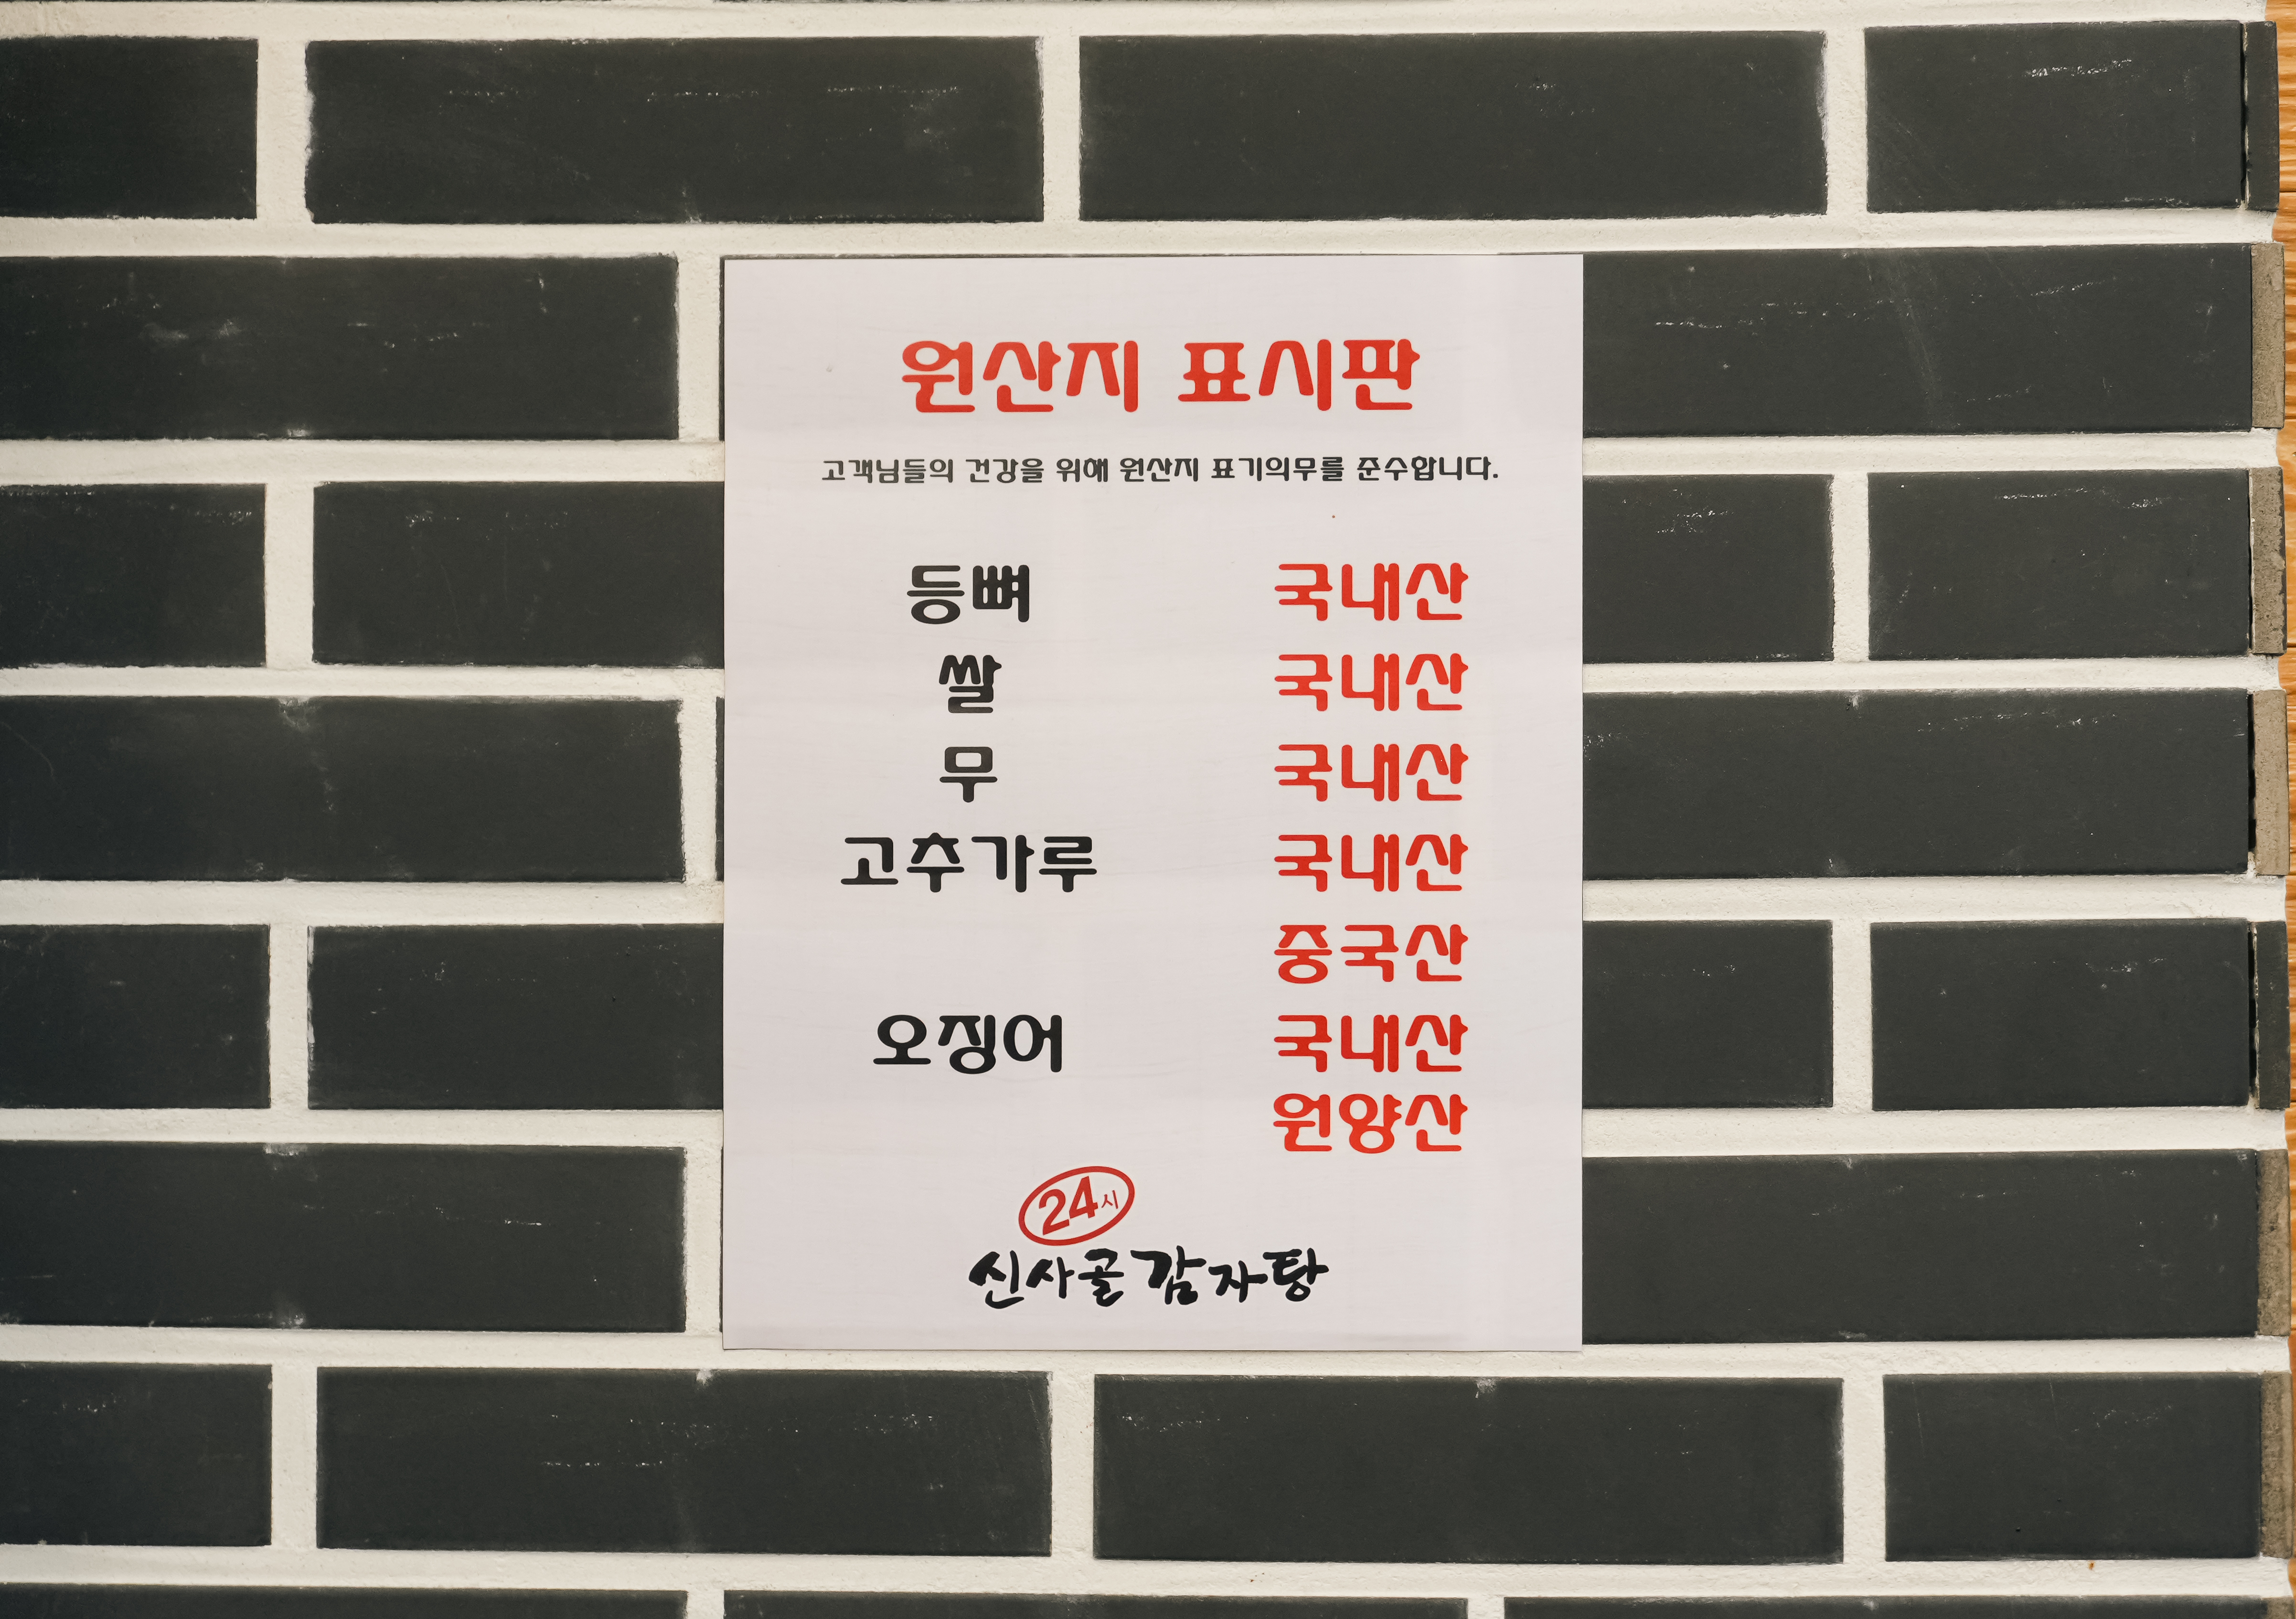 원산지 표시판
고객님들의 건강을 위해 원산지 표기의무를 준수합니다.
등뼈 국내산
쌀 국내산
무 국내산
고추가루 국내산
중국산
오징어 국내산
원양산
24시
신사골감자탕